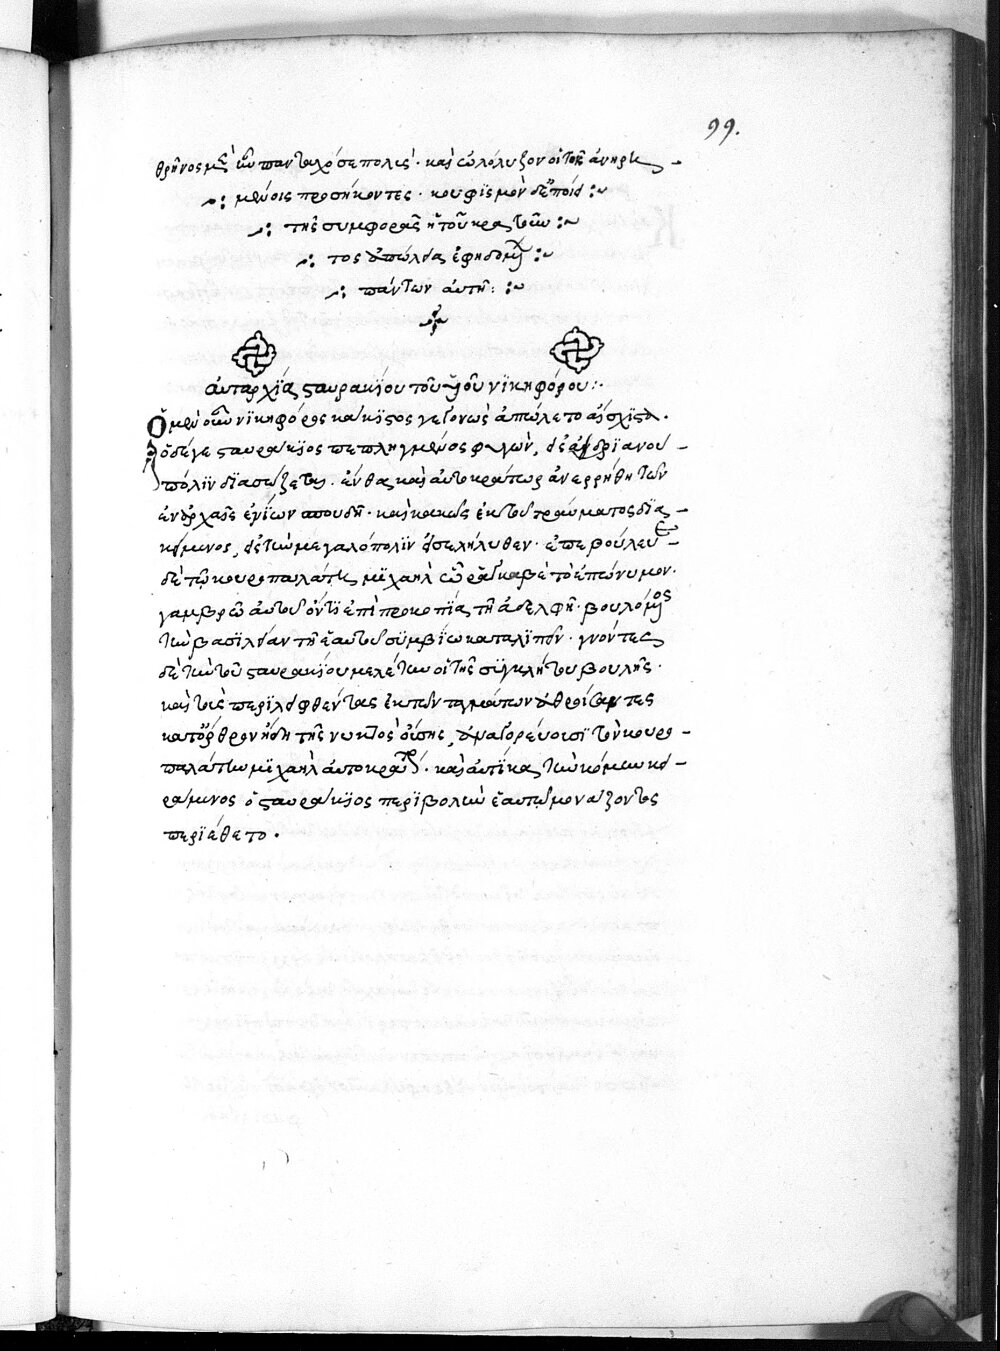 99.
θρῆνος μὲν ἦν πανταχόσε πόλεως· καὶ ὠλόλυξον οἱ τοῖς ἀνηρη
μένοις προσήκοντες· κουφισμὸν δὲ ἐποίει
τῆς συμφορᾶς ἡ τοῦ κρατοῦν
τος ἀπώλεια ἐφηδομένων
πάντων αὐτῇ:
αὐταρχία σταυρακίου τοῦ υἱοῦ νικηφόρου:
Ὁ μὲν οὖν νικηφόρος κάκιστος γεγονὼς ἀπώλετο αἴσχιστα.
ὁ δέ γε σταυράκιος πεπληγμένος φυγὼν, εἰς ἀδριανού
πολιν διασώζεται· ἔνθα καὶ αὐτοκράτωρ ἀνερρήθη τῶν
ἐν ἀρχαῖς ἐνίων σπουδῇ· καὶ κακῶς ἐκ τοῦ τραύματος δια
κείμενος, εἰς τὴν μεγαλόπολιν εἰσελήλυθεν· ἐπεβούλευε
δὲ τῷ κουροπαλάτῃ μιχαὴλ ᾧ ῥαγκαβὲ τὸ ἐπώνυμον·
γαμβρῷ αὐτοῦ ὄντι ἐπὶ προκοπίᾳ τῇ ἀδελφῇ· βουλόμενος
τὴν βασιλείαν τῇ ἑαυτοῦ συμβίῳ καταλιπεῖν· γνόντες
δὲ τὴν τοῦ σταυρακίου μελέτην οἱ τῆς συγκλήτου βουλῆς·
καὶ τοὺς περιλειφθέντας ἐκ τῶν ταγμάτων ἀθροίσαντες
κατ' ὄρθρον ἤδη τῆς νυκτὸς οὔσης, ἀναγορεύουσι τὸν κουρο
παλάτην μιχαὴλ αὐτοκράτορα· καὶ αὐτίκα τὴν κόμην κει
ράμενος ὁ σταυράκιος περιβολὴν ἑαυτῷ μονάζοντος
περιέθετο.